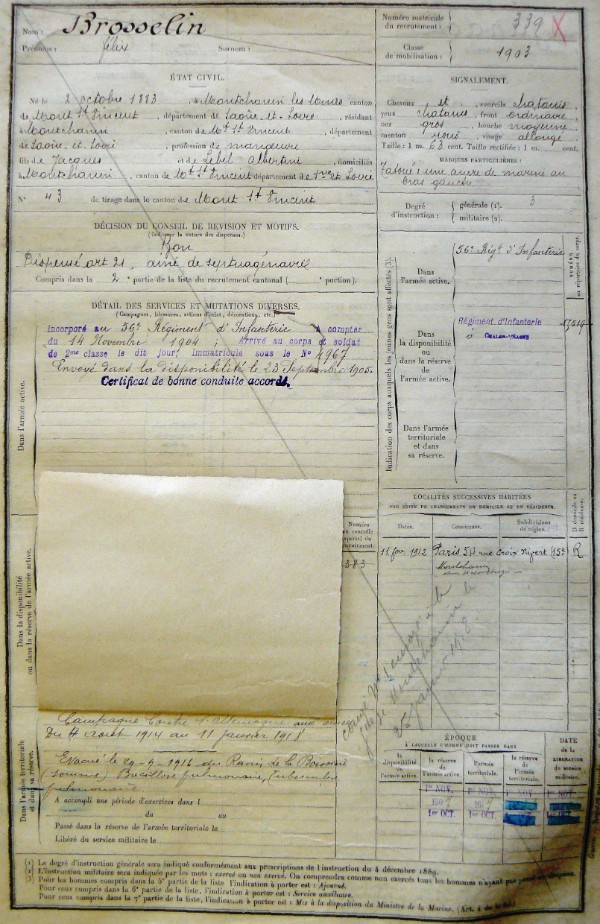 Nom : Brosselin
Prénoms : félix Surnom :
Numéro matricule
du recrutement : 339
Classe
de mobilisation : 1903
ÉTAT CIVIL.
Né le 2 octobre 1883, à Montchanin les Mines, canton
de Mont St Vincent, département de Saône et Loire, résidant
à Montchanin, canton de Mt St Vincent, département
de Saône et Loire, profession de manœuvre
fils de Jacques et de Lebel Albertine, domiciliés
à Montchanin, canton de Mt St Vincent département de
N° 43 de tirage dans le canton de Mont St Vincent
SIGNALEMENT.
Cheveux et sourcils chatains
yeux chatains, front ordinaire
nez gros, bouche moyenne
menton rond, visage allongé
Taille : 1 m. 63 cent. Taille rectifiée : 1 m. cent.
MARQUES PARTICULIÈRES :
Tatoué : une ancre de marine au
bras gauche
Degré
d'instruction :
générale (1). 3
militaire (2).
DÉCISION DU CONSEIL DE REVISION ET MOTIFS.
Bon
Dispensé art 21, ainé de septuagénaire
Compris dans la 2e partie de la liste du recrutement cantonal ( portion).
DÉTAIL DES SERVICES ET MUTATIONS DIVERSES.
(Campagnes, blessures, actions d'éclat, décorations, etc.)
Incorporé au 56e Régiment d'Infanterie à compter
du 14 Novembre 1904 ; Arrivé au corps et soldat
de 2me classe le dit jour, immatriculé sous le N° 4967
Envoyé dans la disponibilité le 23 Septembre 1905.
Certificat de bonne conduite accordé.
Dans l'armée active.
Indication des corps auxquels les jeunes gens sont affectés (3).
Dans
l'armée active.
56e Régt d'Infanterie
Dans
la disponibilité
ou dans la réserve
de l'armée active.
Régiment d'Infanterie
Dans l'armée
territoriale
et dans
sa réserve.
LOCALITÉS SUCCESSIVES HABITÉES
PAR SUITE DE CHANGEMENTS DE DOMICILE OU DE RÉSIDENCE.
Dates. Communes. Subdivisions
de région. D domicile ou
R résidence.
1912 Paris 54 rue Croix Nivert (15e) R
Dans la disponibilité
ou dans la réserve de l'armée active.
Campagne contre l'Allemagne
Du 4 Août 1914 au 11 janvier 1918
Evacué le 29-9-1916 du Ravin de la
(Somme) Bacillose pulmonaire, tuberculose
pulmonaire
Dans l'armée territoriale
et dans sa réserve.
A accompli une période d'exercices dans l
du au
Passé dans la réserve de l'armée territoriale le
Libéré du service militaire le
ÉPOQUE
À LAQUELLE L'HOMME DOIT PASSER DANS
DATE
DE LA
LIBÉRATION
du service
militaire.
la
disponibilité
de l'armée active. la réserve
de
l'armée active. l'armée
territoriale. la réserve
de
l'armée
territoriale.
1er NOV.
1er OCT.
(1) Le degré d'instruction générale sera indiqué conformément aux prescriptions de l'instruction du 4 décembre 1889.
(2) L'instruction militaire sera indiquée par les mots : exercé ou non exercé. On comprendra comme non exercés tous les hommes n'ayant pas
(3) Pour les hommes compris dans la 5e partie de la liste l'indication à porter est : Ajourné.
Pour ceux compris dans la 6e partie de la liste, l'indication à porter est : Service auxiliaire.
Pour ceux compris dans la 7e partie de la liste, l'indication à porter est : Mis à la disposition du Ministre de la Marine.